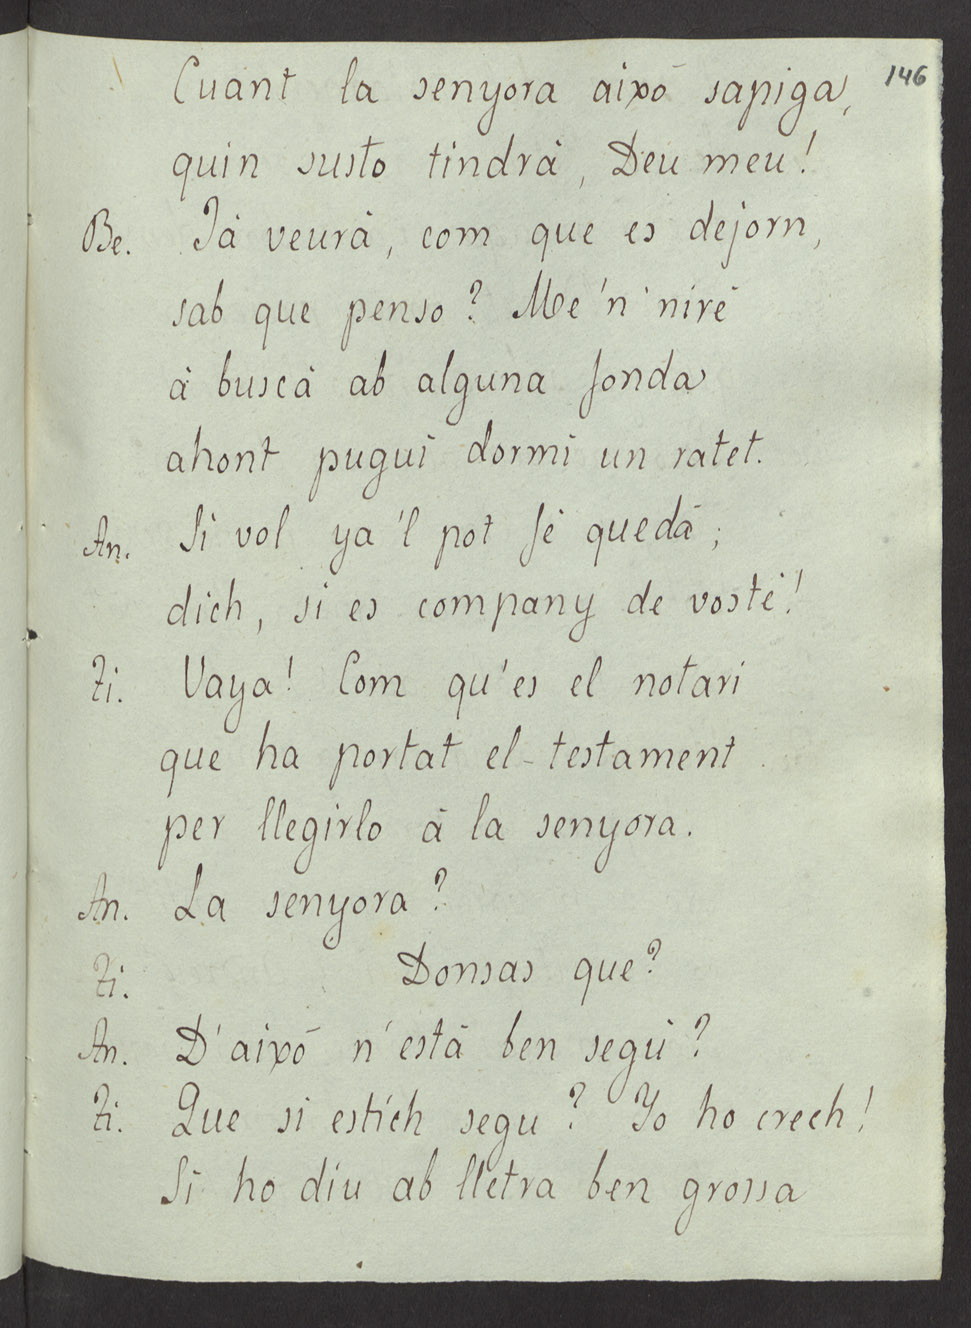 146
Cuant la senyora aixó sapiga,
quin susto tindrá, Deu meu!
Be. Já veurá, com que es dejorn,
sab que penso? Me 'n niré
á buscá ab alguna fonda
ahont pugui dormi un ratet.
An. Si vol ya 'l pot fé quedá;
dich, si es company de vosté!
Ti. Vaya! Com qu'es el notari
que ha portat el testament
per llegirlo á la senyora.
An. La senyora?
Ti. Donsas que?
An. D'aixó n'está ben segú?
Ti. Que si estich segu? Yo ho crech!
Si ho diu ab lletra ben grossa